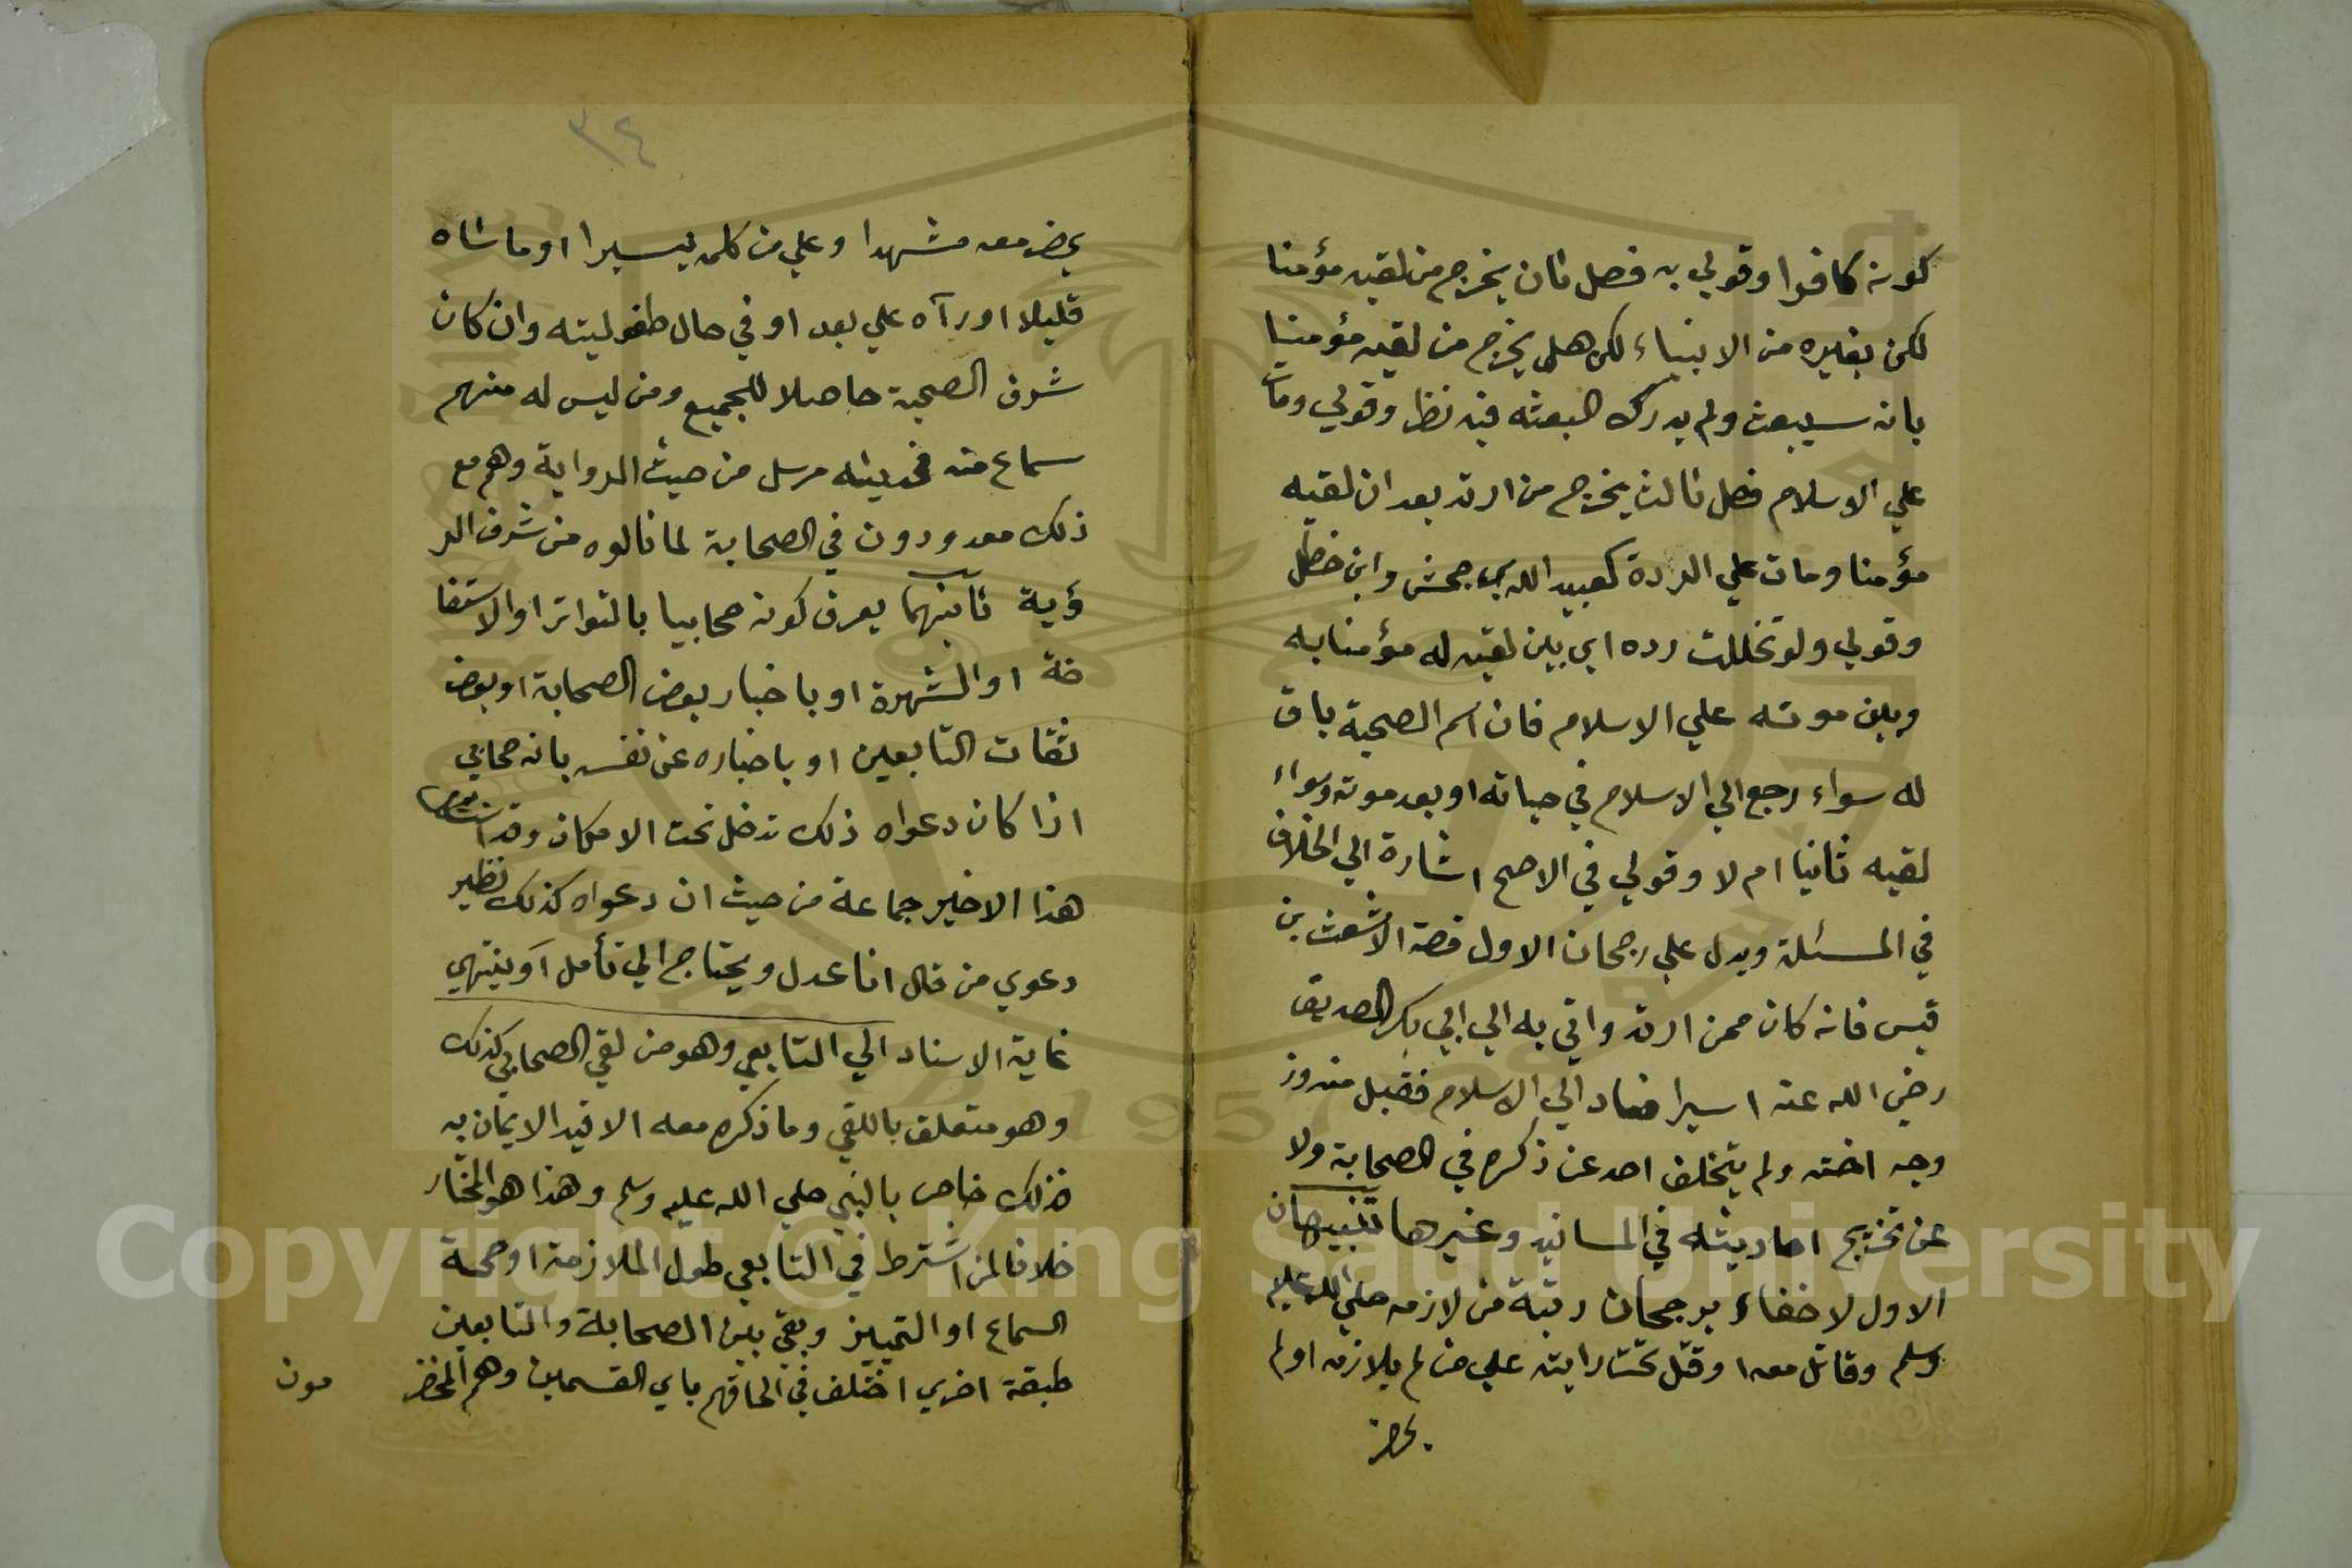 كونه كافرا وقولي به فصل ثان يخرج من لقيه مؤمنا
لكن بغيره من الانبياء لكن هل يخرج من لقيه مؤمنا
بانه سيبعث ولم يدرك البعثه فيه نظر وقولي ومات
علي الاسلام فصل ثالث يخرج من ارتد بعد ان لقيه
مؤمنا ومات علي الردة كعبيد الله بن جحش وابن خطل
وقولي ولو تخللت رده اي بين لقيه له مؤمنا به
وبين موته علي الاسلام فان اسم الصحبة باق
له سواء رجع الي الاسلام في حياته او بعد موته وسواء
لقيه ثانيا ام لا وقولي في الاصح اشارة الي الخلاف
في المسئلة ويدل علي رجحان الاول قصة الاشعث بن
قيس فانه كان ممن ارتد واتي به الي ابي بكر الصديق
رضي الله عنه اسيرا فعاد الي الاسلام فقبل منه وز
وجه اخته ولم يتخلف احد عن ذكره في الصحابة ولا
عن تخريج احاديثه في المسانيد وغيرها تنبيهان
الاول لا خفاء برجحان رتبة من لازمه صلي الله عليه
وسلم وقاتل معه او قتل تحت رايته علي من لم يلازمه او لم
يحضر
٣٤
يحضر معه مشهدا وعلي من كلمه يسيرا او ماشاه
قليلا او رآه علي بعد او في حال طفوليته وان كان
شرف الصحبة حاصلا للجميع ومن ليس له منهم
سماع منه فحديثه مرسل من حيث الرواية وهم مع
ذلك معدودون في الصحابة لما نالوه من شرف الر
ؤية ثانيهما يعرف كونه صحابيا بالتواتر او الاستفا
ضة او الشهرة او باخبار بعض الصحابة او بعض
ثقات التابعين او باخباره عن نفسه بانه صحابي
اذا كان دعواه ذلك تدخل تحت الامكان وقد استشكل
هذا الاخير جماعة من حيث ان دعواه كذلك نظير
دعوي من قال انا عدل ويحتاج الي تأمل او ينتهي
غاية الاسناد الي التابعي وهو من لقي الصحابي كذلك
وهو متعلق باللقي وما ذكره معه الا قيد الايمان به
فذلك خاص بالنبي صلي الله عليه وسلم وهذا هو المختار
خلافا لمن اشترط في التابعي طول الملازمة او صحة
السماع او التمييز وبقي بين الصحابة والتابعين
طبقة اخري اختلف في الحاقهم باي القسمين وهم المخضر
مون
Copyright © King Saud University
1957